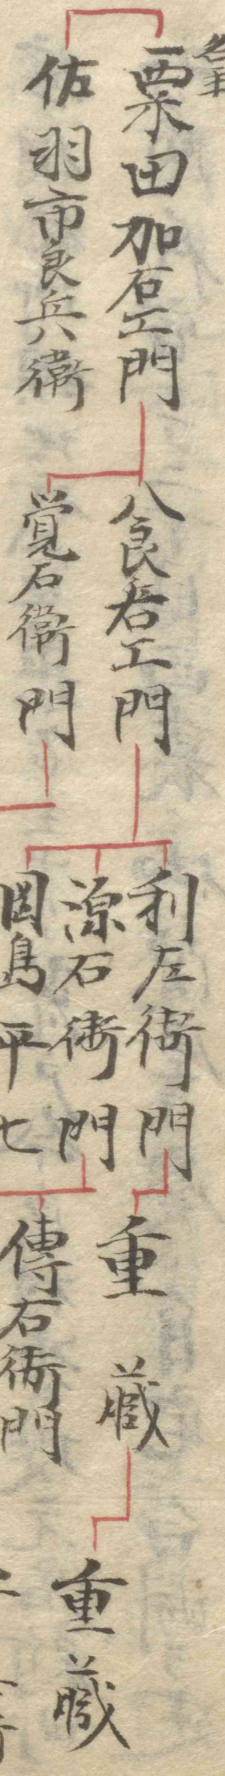 粟田加右エ門
佐羽市良兵衛
八良右エ門
覚右衛門
利左衛門
源右衛門
岡島平七
重蔵
傳右衛門
重蔵